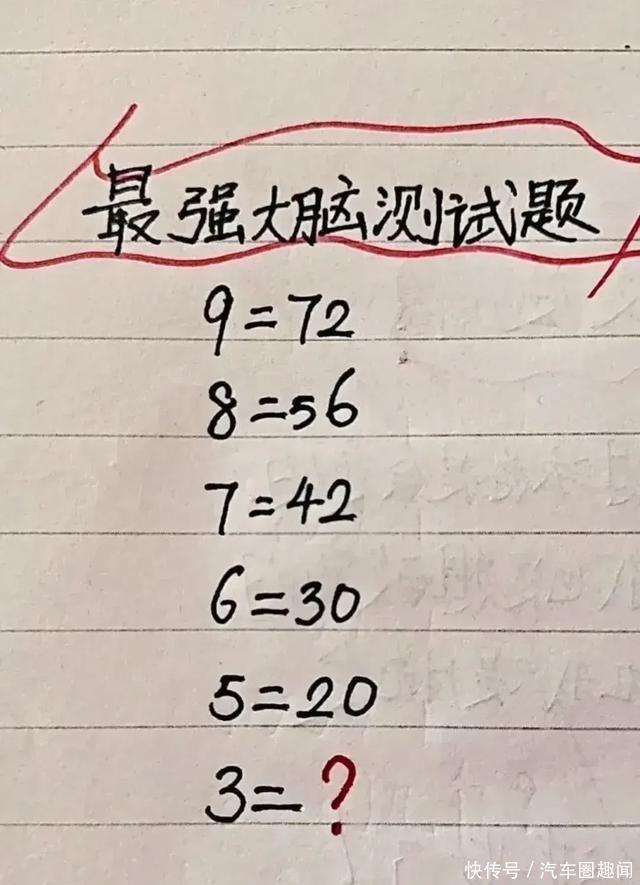 最强大脑测试题
9=72
8=56
7=42
6=30
5=20
3=?
快传号／汽车圈趣闻